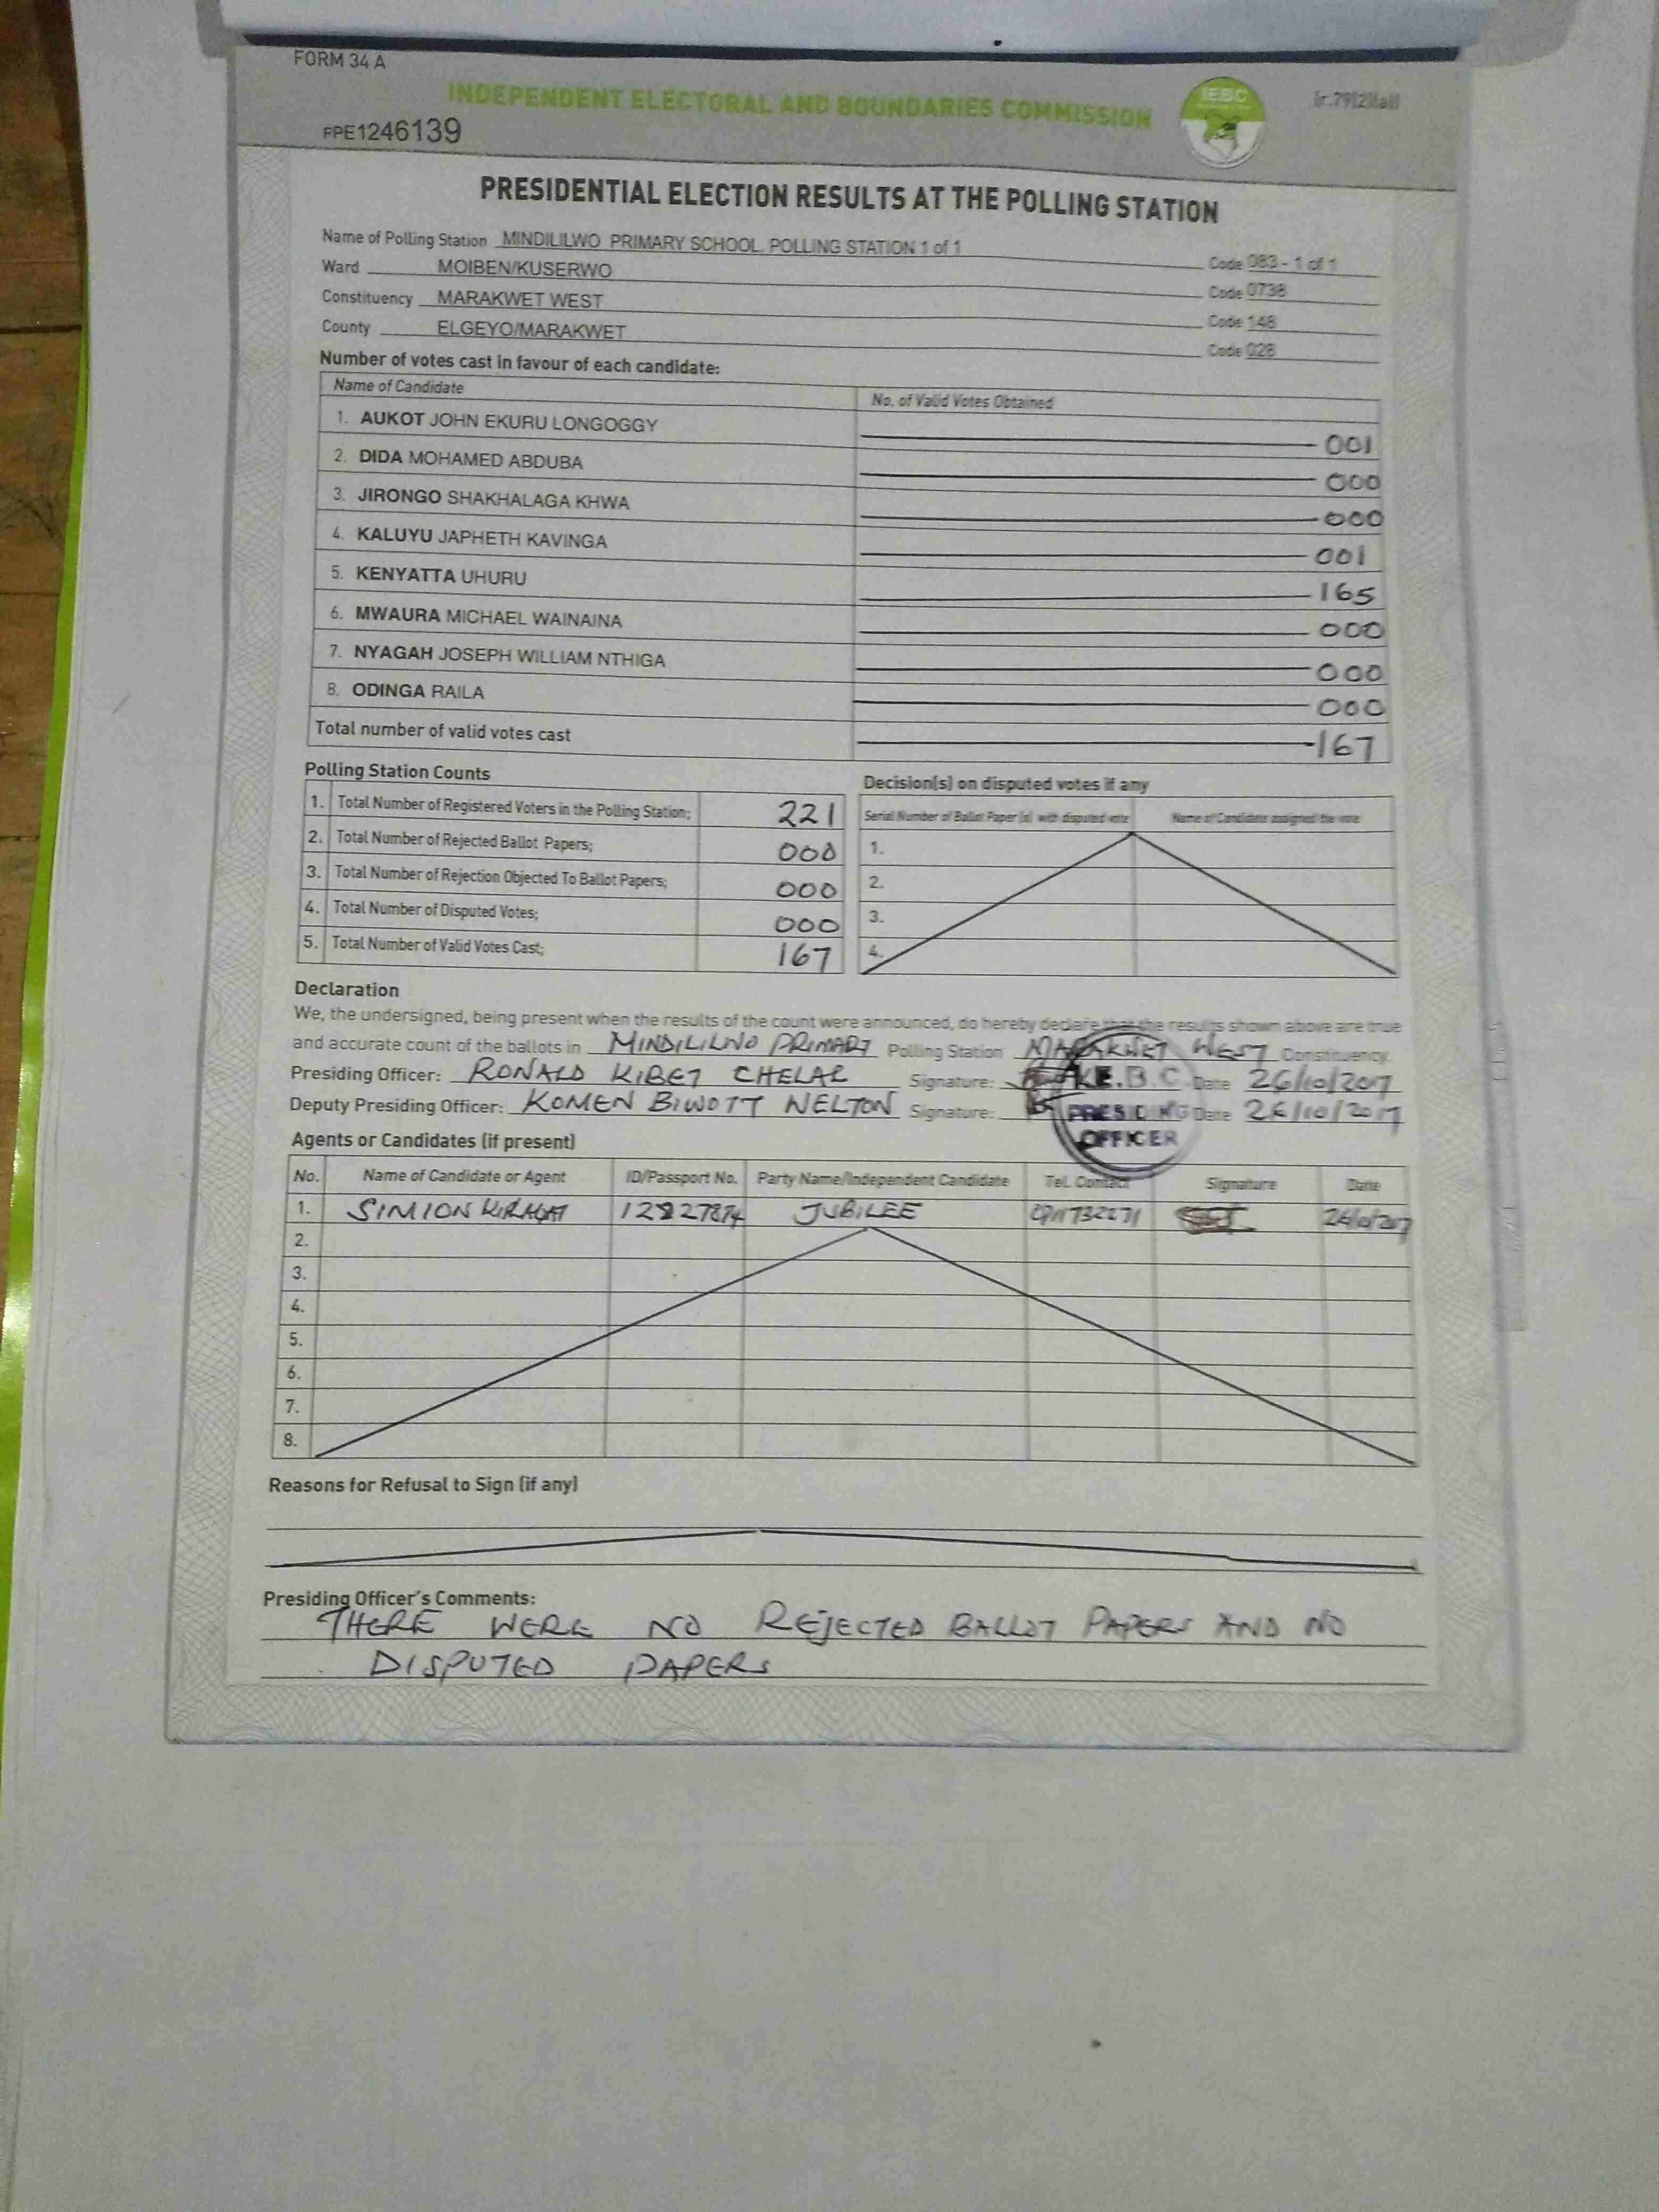 FORM 34 A
INDEPENDENT ELECTORAL AND BOUNDARIES COMMISSION
IEBC
FPE1246139
PRESIDENTIAL ELECTION RESULTS AT THE POLLING STATION
Name of Polling Station MINDILILWO PRIMARY SCHOOL. POLLING STATION 1 of 1 Code 083 - 1 of 1
Ward MOIBEN/KUSERWO Code 0738
Constituency MARAKWET WEST Code 148
County ELGEYO/MARAKWET Code 028
Number of votes cast in favour of each candidate:
Name of Candidate No. of Valid Votes Obtained
1. AUKOT JOHN EKURU LONGOGGY 001
2. DIDA MOHAMED ABDUBA 000
3. JIRONGO SHAKHALAGA KHWA 000
4. KALUYU JAPHETH KAVINGA 001
5. KENYATTA UHURU 165
6. MWAURA MICHAEL WAINAINA 000
7. NYAGAH JOSEPH WILLIAM NTHIGA 000
8. ODINGA RAILA 000
Total number of valid votes cast 167
Polling Station Counts
1. Total Number of Registered Voters in the Polling Station; 221
2. Total Number of Rejected Ballot Papers; 000
3. Total Number of Rejection Objected To Ballot Papers; 000
4. Total Number of Disputed Votes; 000
5. Total Number of Valid Votes Cast; 167
Decision(s) on disputed votes if any
Serial Number of Ballot Paper (s) with disputed vote Name of Candidate assigned the vote
1.
2.
3.
4.
Declaration
We, the undersigned, being present when the results of the count were announced, do hereby declare that the results shown above are true
and accurate count of the ballots in MINDILILWO PRIMARY Polling Station MARAKWET WEST Constituency.
Presiding Officer: RONALD KIBET CHELAL Signature: Date 26/10/2017
Deputy Presiding Officer: KOMEN BIWOTT WELTON Signature: Date 26/10/2017
I.E.B.C.
PRESIDING
OFFICER
Agents or Candidates (if present)
No. Name of Candidate or Agent ID/Passport No. Party Name/Independent Candidate Tel. Contact Signature Date
1. SIMION JUBILEE 26/10/2017
2.
3.
4.
5.
6.
7.
8.
Reasons for Refusal to Sign (if any)
Presiding Officer's Comments:
THERE WERE NO REJECTED BALLOT PAPERS AND NO
DISPUTED PAPERS